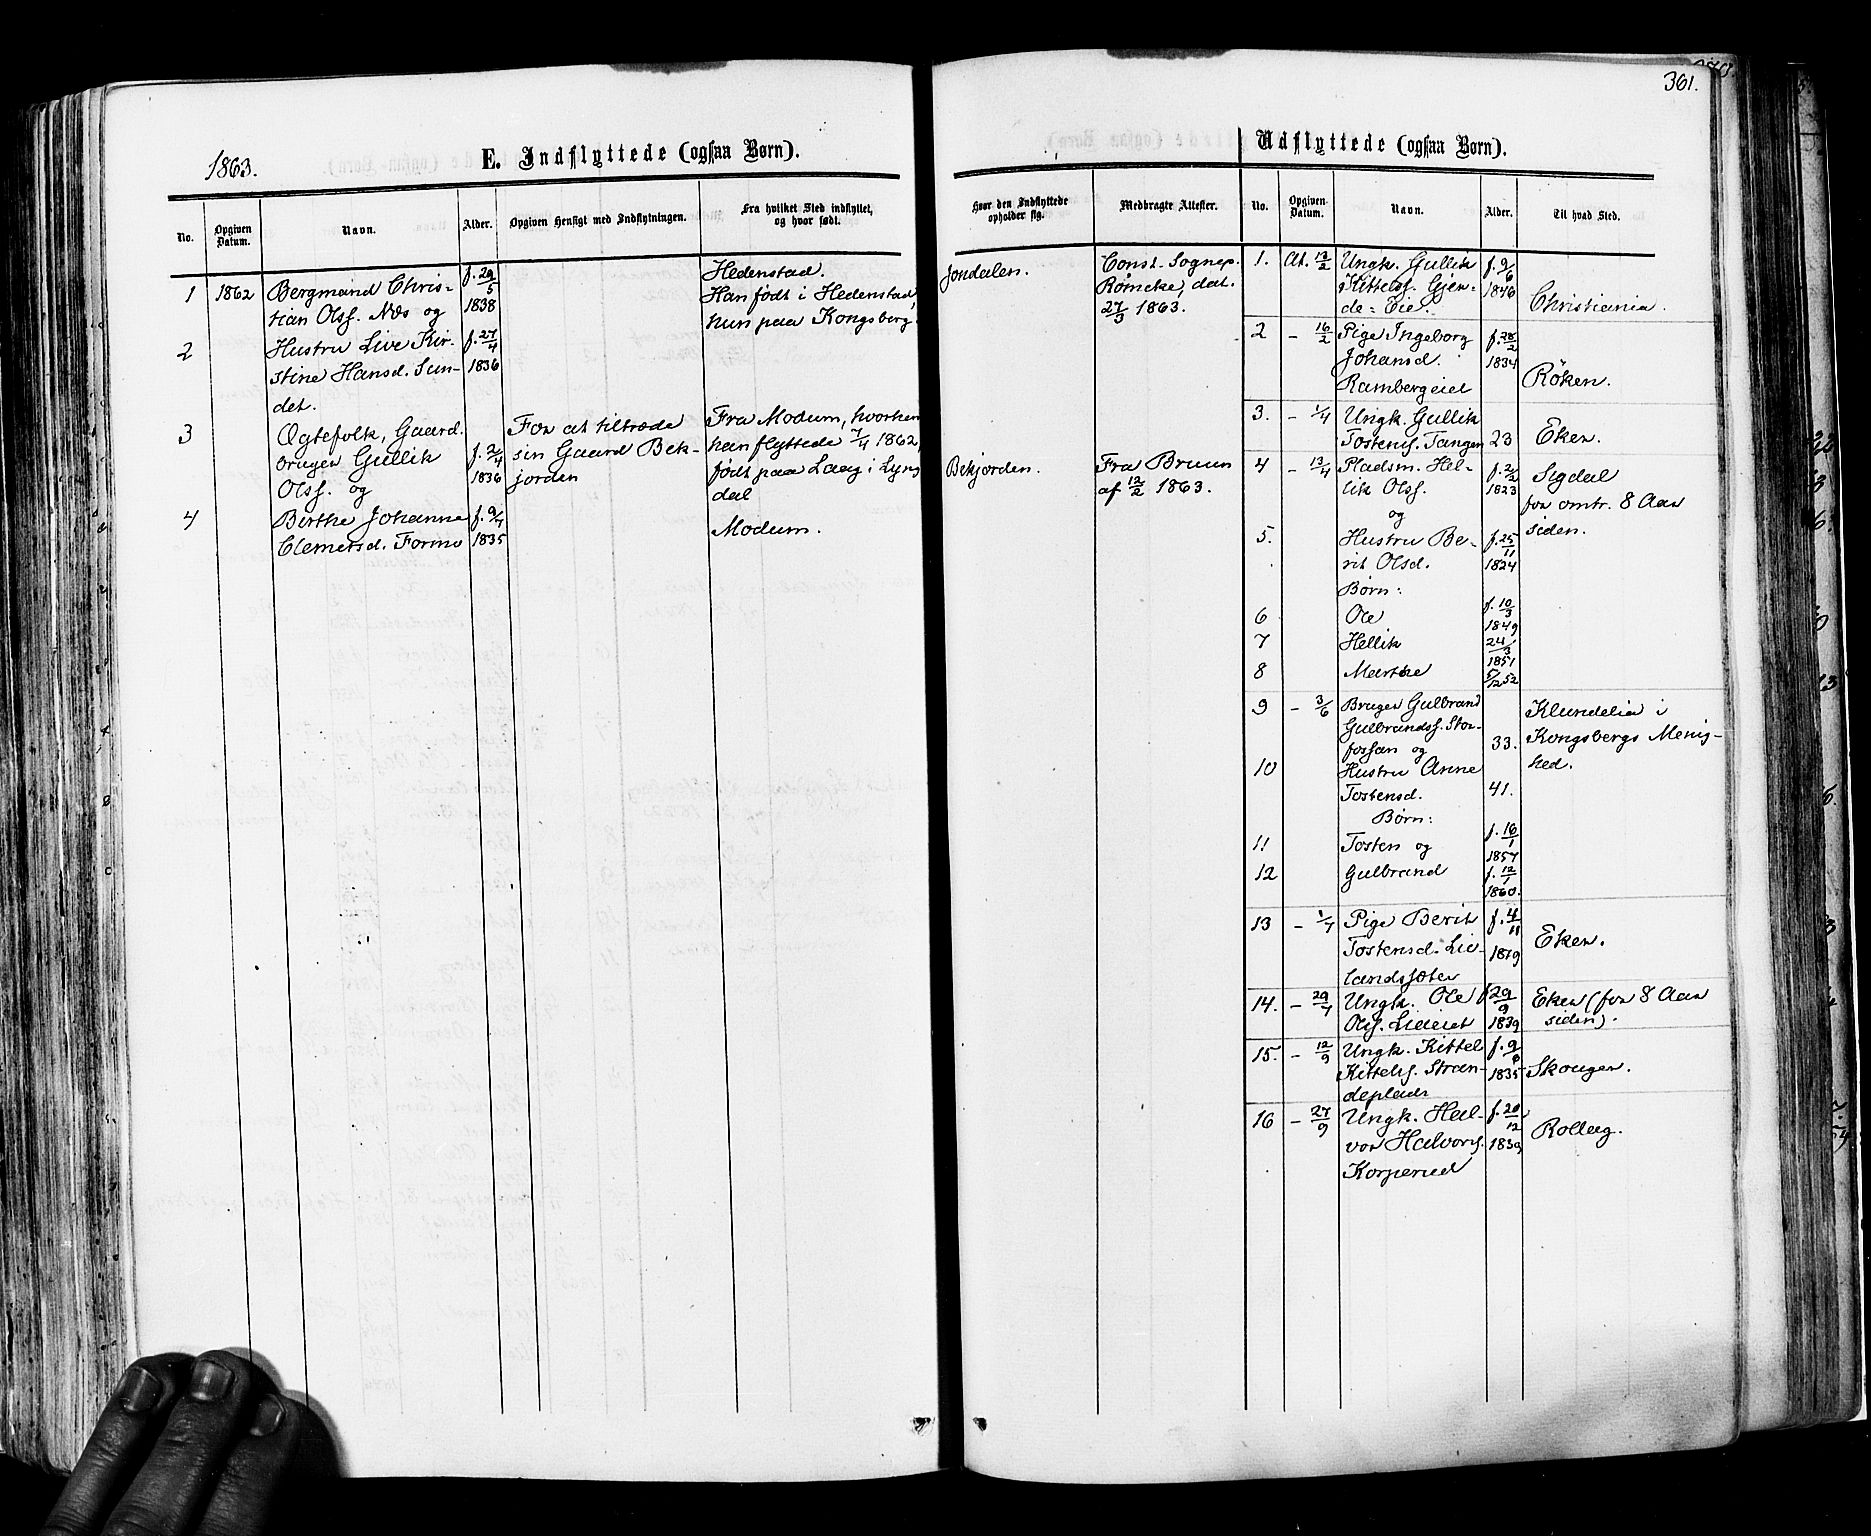 361.
1863.
E. Indflyttede (ogsaa Børn).
No.
Opgiven Datum.
Navn.
Alder.
Opgiven Hensigt med Indflytningen.
Fra hvilket Sted indflyttet, og hvor født.
Hvor den Indflyttede opholder sig.
Medbragte Attester.
1 1862 Bergmand Chris-
tian Olss. Næs og
f. 29/5
1838
Hedenstad.
Han født i Hedenstad,
hun paa Kongsberg.
Jondalen.
Const. Sognep.
Rømcke, dat.
27/3 1863.
2 Hustru Live Kir-
stine Hansd. Sun-
det.
f. 27/4
1836
3 Ægtefolk, Gaard-
bruger Gullik
Olss. og
f. 2/4
1836
For at tiltræde
sin Gaard Bek-
jorden
Fra Modum, hvorhen
han flyttede 7/4 1862,
født paa Laag i Lyng
dal
Bekjorden.
Fra Bruun
af 12/2 1863.
4 Berthe Johanne
Clemetsd. Formo
f. 9/7
1835
Modum.
Udflyttede (ogsaa Børn).
No.
Opgiven Datum.
Navn.
Alder.
Til hvad Sted.
1. At. 13/2 Ungk. Gullik
Kittelss. Gjen-
de-Eie.
f. 9/6
1846
Christiania.
2 - 16/2 Pige Ingeborg
Johansd.
Rambergeiet
f. 28/2
1834
Røken.
3. - 1/4 Ungk. Gullik
Tostenss. Tangen 23 Eker.
4 - 13/4 Pladsm. Hel-
lik Olss.
og
f. 2/2
1823
Sigdal
for omtr. 8 Aar
siden.
5. Hustru Be-
rit Olsd.
f. 25/11
1824
Børn:
6 Ole f. 10/3
1849
7 Hellik 24/3
1851
8 Marthe 5/12 52
9 - 3/6 Bruger Gulbrand
Gulbrandss. Stor-
fossen og 33.
Klundelia i
Kongsbergs Menig-
hed.
10 Hustru Anne
Tostensd. 41.
Børn:
11 Tosten og f. 16/1
1857
12 Gulbrand f. 12/1
1860.
13 - 1/7 Pige Berit
Tostensd. Lie-
landssæter
f. 4/11
1819
Eker.
14. - 29/7 Ungk. Ole
Olss. Lieeiet
f. 29/9
1839
Eker (for 8 Aar
siden).
15. - 12/9 Ungk. Kittel
Kittelss. Stran-
deplads
f. 9/6
1835
Skouger.
16 - 27/9 Ungk. Hal-
vor Halvorss.
Korperud
f. 20/12
1839
Rollag.